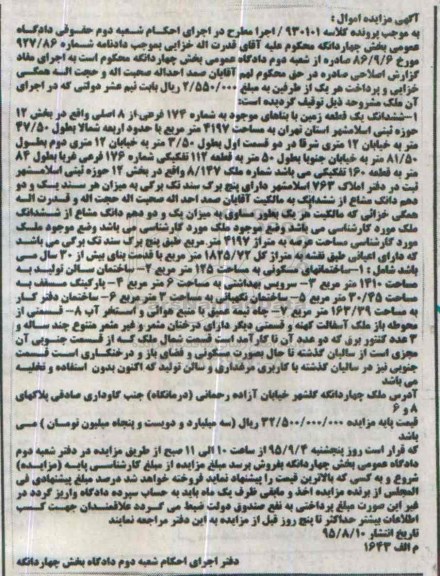 آگهی مزایده اموال :
به موجب پرونده کلاسه ۹۳۰۱۰۱ / اجرا مطرح در اجرای احکام شعبه دوم حقوقی دادگاه
عمومی بخش چهاردانگه محکوم علیه آقای قدرت اله خزایی بموجب دادنامه شماره ۹۲۷/۸۶
مورخ ۸۶/۹/۶ صادره از شعبه دوم دادگاه عمومی بخش چهاردانگه محکوم است به اجرای مفاد
گزارش اصلاحی صادره در حق محکوم لهم آقایان صمد احداله صحبت اله و حجت اله همگی
خزایی و پرداخت هر یک از طرفین به مبلغ ۲/۵۵۰/۰۰۰ ریال بابت نیم عشر دولتی که در اجرای
آن ملک مشروحه ذیل توقیف گردیده است:
۱-ششدانگ یک قطعه زمین با بناهای موجود به شماره ۱۷۴ فرعی از ۸ اصلی واقع در بخش ۱۲
حوزه ثبتی اسلامشهر استان تهران به مساحت ۴۱۹۷ متر مربع با حدود اربعه شمالا بطول ۴۷/۵۰
متر به خیابان ۱۲ متری شرقا در دو قسمت اول بطول ۳/۵۰ متر به خیابان ۱۲ متری دوم بطول
۸۱/۵۰ متر به خیابان جنوبا بطول ۵۰ متر به قطعه ۱۱۴ تفکیکی شماره ۱۷۶ فرعی غربا بطول ۸۴
متر به قطعه ۱۶۰ تفکیکی می باشد شماره ملک ۸/۱۴۷ واقع در بخش ۱۲ حوزه ثبتی اسلامشهر
ثبت در دفتر املاک ۷۶۳ اسلامشهر دارای پنج برگ سند تک برگی به میزان هر سند یک و دو
دهم دانگ مشاع از ششدانگ به مالکیت آقایان صمد احد اله صحبت اله حجت اله و قدرت اله
همگی خزائی که مالکیت هر یک بطور مساوی به میزان یک و دو دهم دانگ مشاع از ششدانگ
ملک مورد کارشناسی می باشد وضع موجود ملک مورد کارشناسی می باشد وضع موجود ملک
مورد کارشناسی مساحت عرصه به متراژ ۴۱۹۷ متر مربع طبق پنج برگ سند تک برگی می باشد
که دارای اعیانی طبق نقشه به متراژ کل ۱۸۲۵/۷۲ متر مربع با قدمت بنای بیش از ۳۰ سال می
باشد شامل : ۱-ساختمانهای مسکونی به مساحت ۱۲۵ متر مربع ۲- ساختمان سالن تولید به
مساحت ۱۴۱۰ متر مربع ۳- سرویس بهداشتی به مساحت ۶ متر مربع ۴- پارکینگ مسقف به
مساحت ۳۰/۴۵ متر مربع ۵- ساختمان نگهبانی به مساحت متر مربع ۶- ساختمان دفتر کار
به مساحت ۱۶۳/۳۹ متر مربع ۷- چاه نیمه عمیق با منبع هوائی و استخر آب ۸- قسمتی از
محوطه باز ملک آسفالت کهنه و قسمتی دیگر دارای درختان مثمر و غیر مثمر متنوع چند ساله و
۳ عدد کنتور برق که دو عدد آن تا کارآمد است قسمت شمال ملک که از قسمت جنوبی آن
مجزی است از سالیان گذشته تا حال بصورت مسکونی و فضای باز و درختکاری است قسمت
جنوبی نیز در سالیان گذشته با کاربری مرغداری و سالن تولید که اکنون بدون استفاده و تخلیه
می باشد
آدرس ملک چهاردانگه گلشهر خیابان آزاده رحمانی (درمانگاه) جنب گاوداری صادقی پلاکهای
۸ و ۶
قیمت پایه مزایده ۳۲/۵۰۰/۰۰۰/۰۰۰ ریال (سه میلیارد و دویست و پنجاه میلیون تومان ) می
باشد
که قرار است روز پنجشنبه ۹۵/۹/۴ از ساعت ۱۰ الی ۱۱ صبح از طریق مزایده در دفتر شعبه دوم
دادگاه عمومی بخش چهاردانگه بفروش برسد مبلغ مزایده از مبلغ کارشناسی پایه (مزایده)
شروع و به کسی که بالاترین قیمت را پیشنهاد نماید فروخته خواهد شد درصد مبلغ پیشنهادی فی
المجلس از برنده مزایده اخذ و مابقی ظرف یک ماه باید به حساب سپرده دادگاه واریز گردد در
غیر این صورت مبلغ پرداختی به نفع صندوق دولت ضبط می گردد علاقمندان جهت کسب
اطلاعات بیشتر حداکثر تا پنج روز قبل از مزایده به این دفتر مراجعه نمایند
تاریخ انتشار ۹۵/۸/۱۰
م الف ۱۶۴۳
دفتر اجرای احکام شعبه دوم دادگاه بخش چهاردانگه